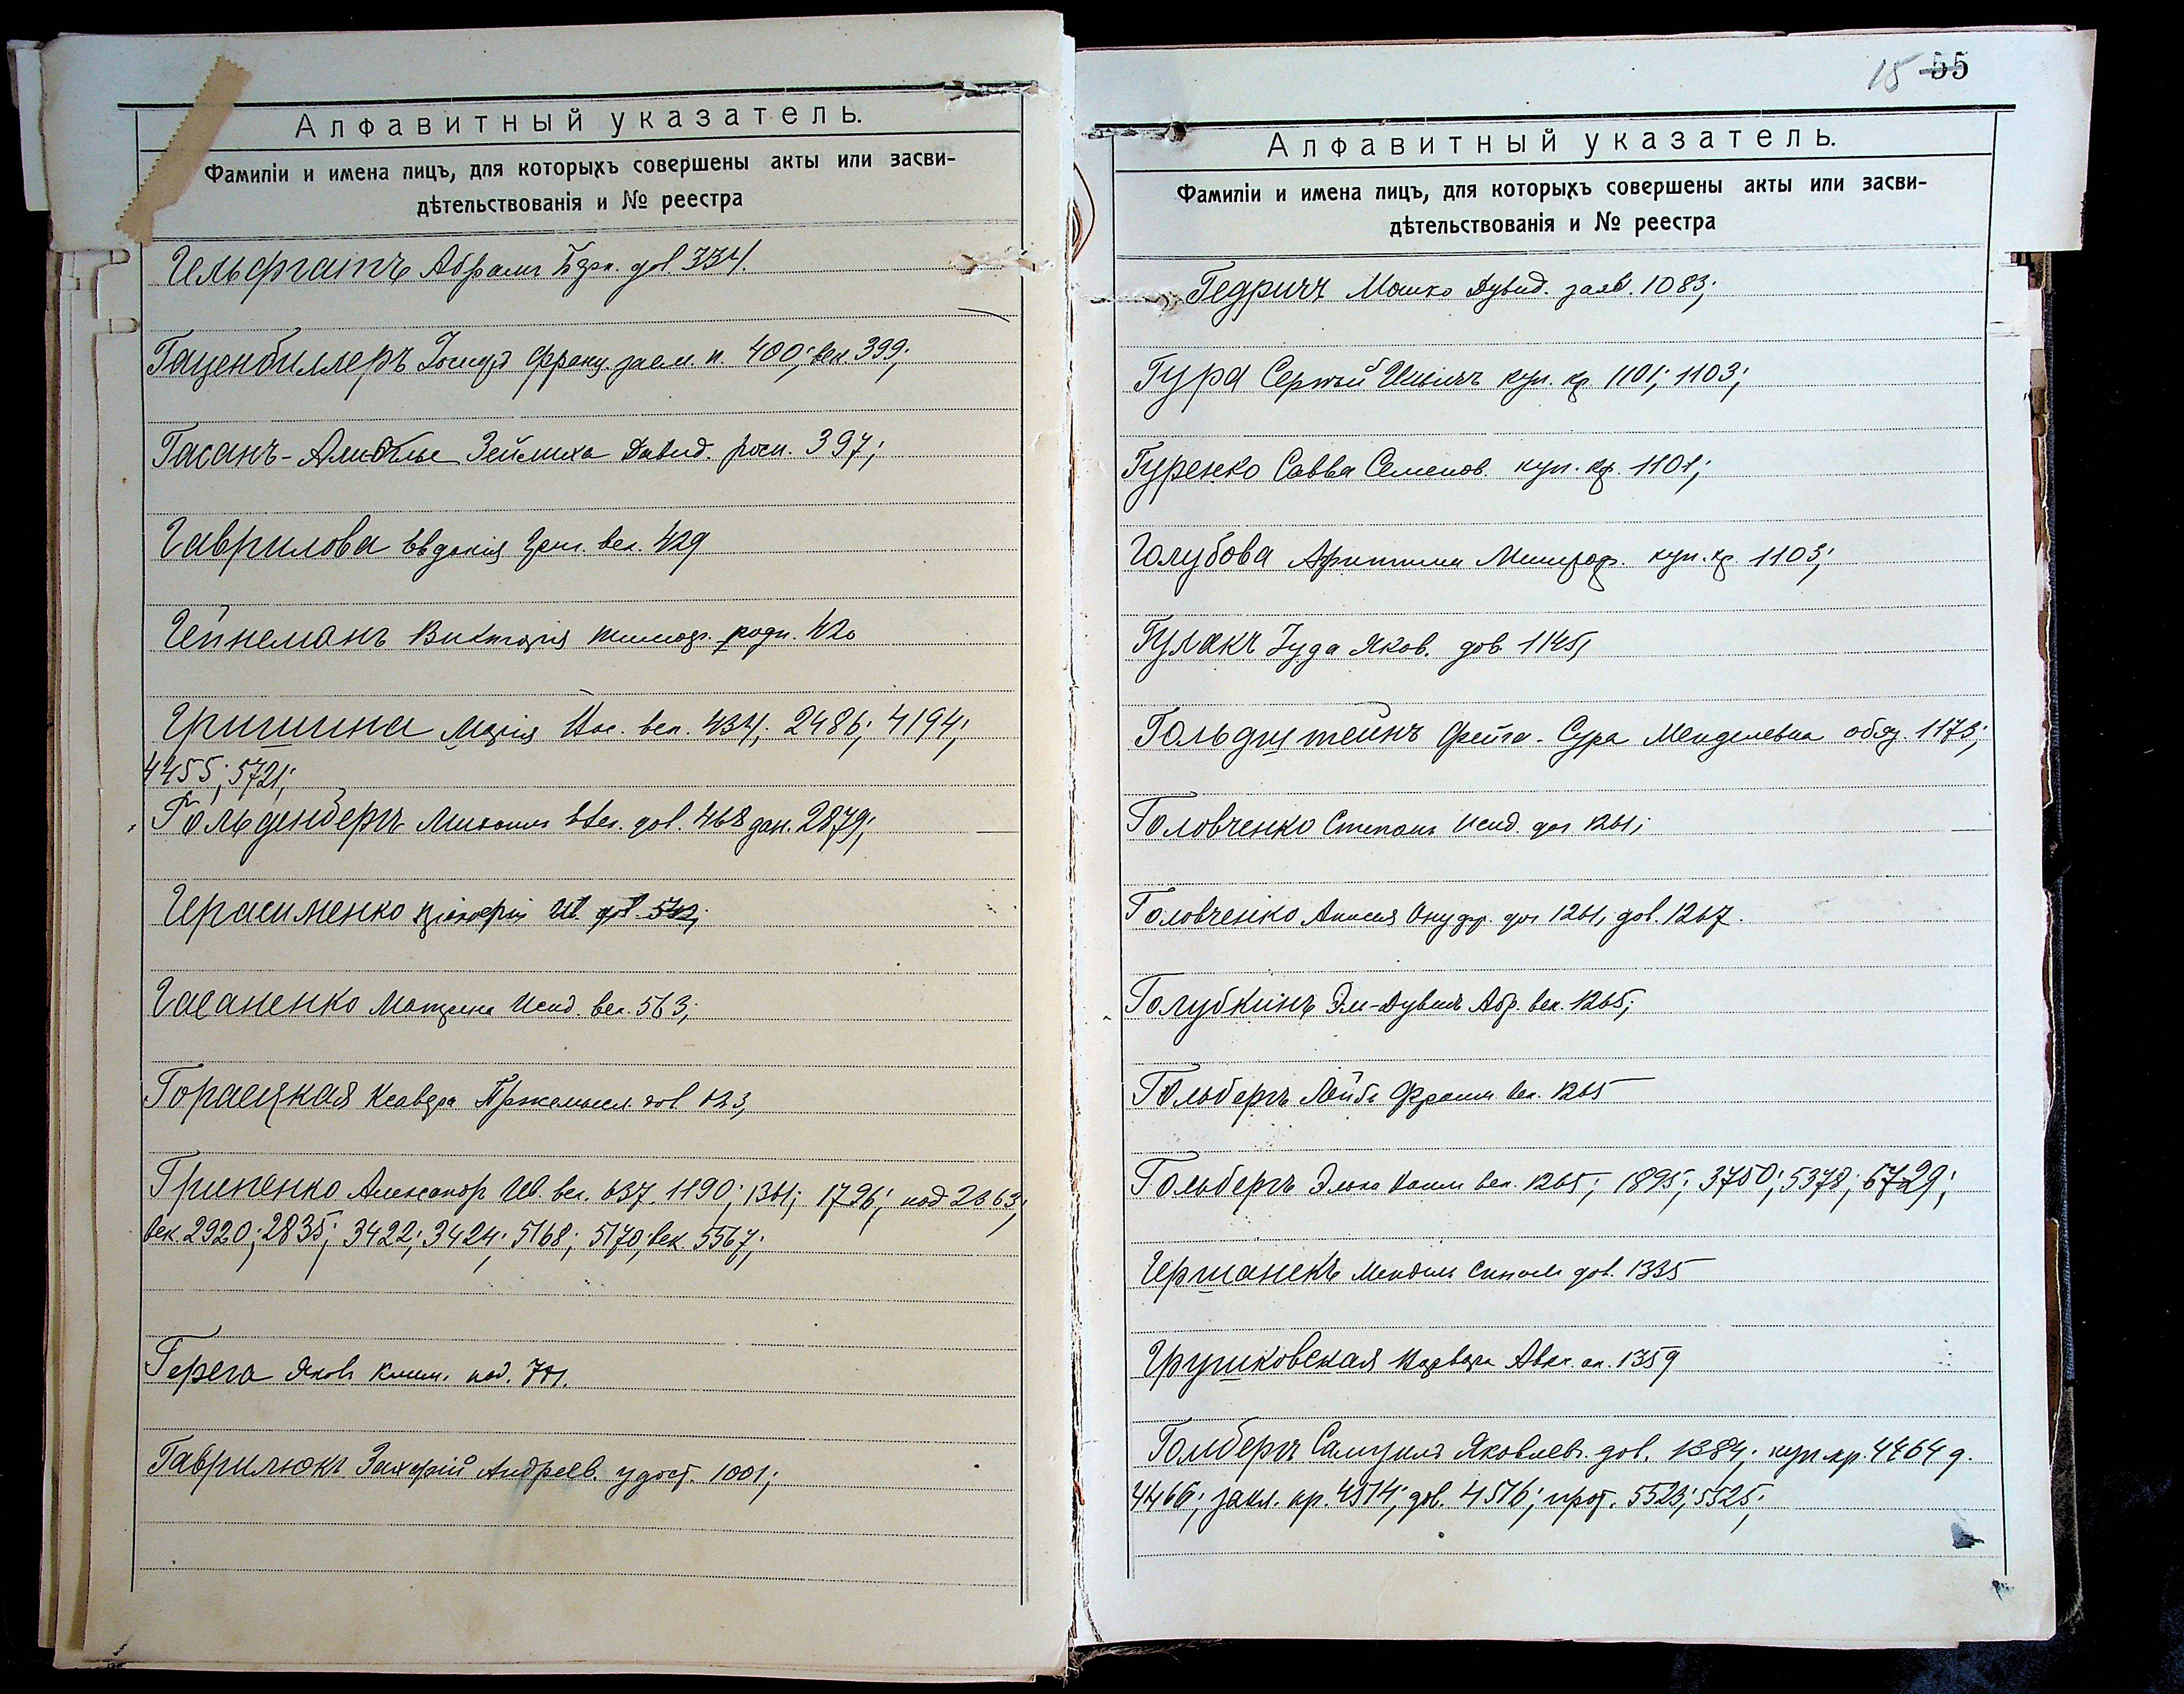 Алфавитный указатель.
Фамиліи и имена лицъ, для которыхъ совершены акты или засви-
дѣтельствованія и № реестра
Гельфгатъ Абрамъ дов. 334.
Гаценбиллеръ заем. п. 400; век. 399;
Гасанъ-Али-Оглы Зейлиха Давид. росп. 397;
Гаврилова Евдокія Григ. век. 429
Гейнеманъ Викторія Тимоф. родп. 420
Гришина Марія век. 434; 2486; 4194;
4455; 5721;
Гольденбергъ Михаилъ дов. 468 дан. 2879;
Герасименко Ив. дов. 542;
Гасаненко Матрена Исид. век. 563;
Гораецкая дов. 623,
Грипенко Александр Ив. век. 637. 1190; 1361; 1726; под 2363;
век. 2920; 2835; 3422; 3424; 5168; 5170; век. 5567;
Герега Яковъ Клим. под.
Гаврилюкъ Захарій Андреев. удост. 1001;
15 55
Алфавитный указатель.
Фамиліи и имена лицъ, для которыхъ совершены акты или засви-
дѣтельствованія и № реестра
Гедричъ Мошко Дувид. заяв. 1083;
Гура Сергѣй Ильичъ куп. кр. 1101; 1103;
Гуренко Савва Семенов. куп. кр. 1101;
Голубова Митроф. куп. кр. 1103;
Гулакъ Іуда Яков. дов. 1145;
Гольдштейнъ Фейга-Сура Менделевна обяз. 1173;
Головченко Степанъ Исид. дог 1261;
Головченко Анисія Онуфр. дог 1261, дов. 1267.
Голубкинъ Эля-Дувидъ Абр. век. 1265;
Гольбергъ Лейба Фроим. век. 1265
Гольбергъ век. 1265; 1895; 3750; 5378; 5729;
Гершанекъ Мендель дов. 1335
Грушковская Варвара 1359
Голбергъ Самуилъ Яковлев. дов. 1384; куп. кр. 4464 д.
4466; закл. кр. 4514; дов. 4516; прот. 5523; 5525;